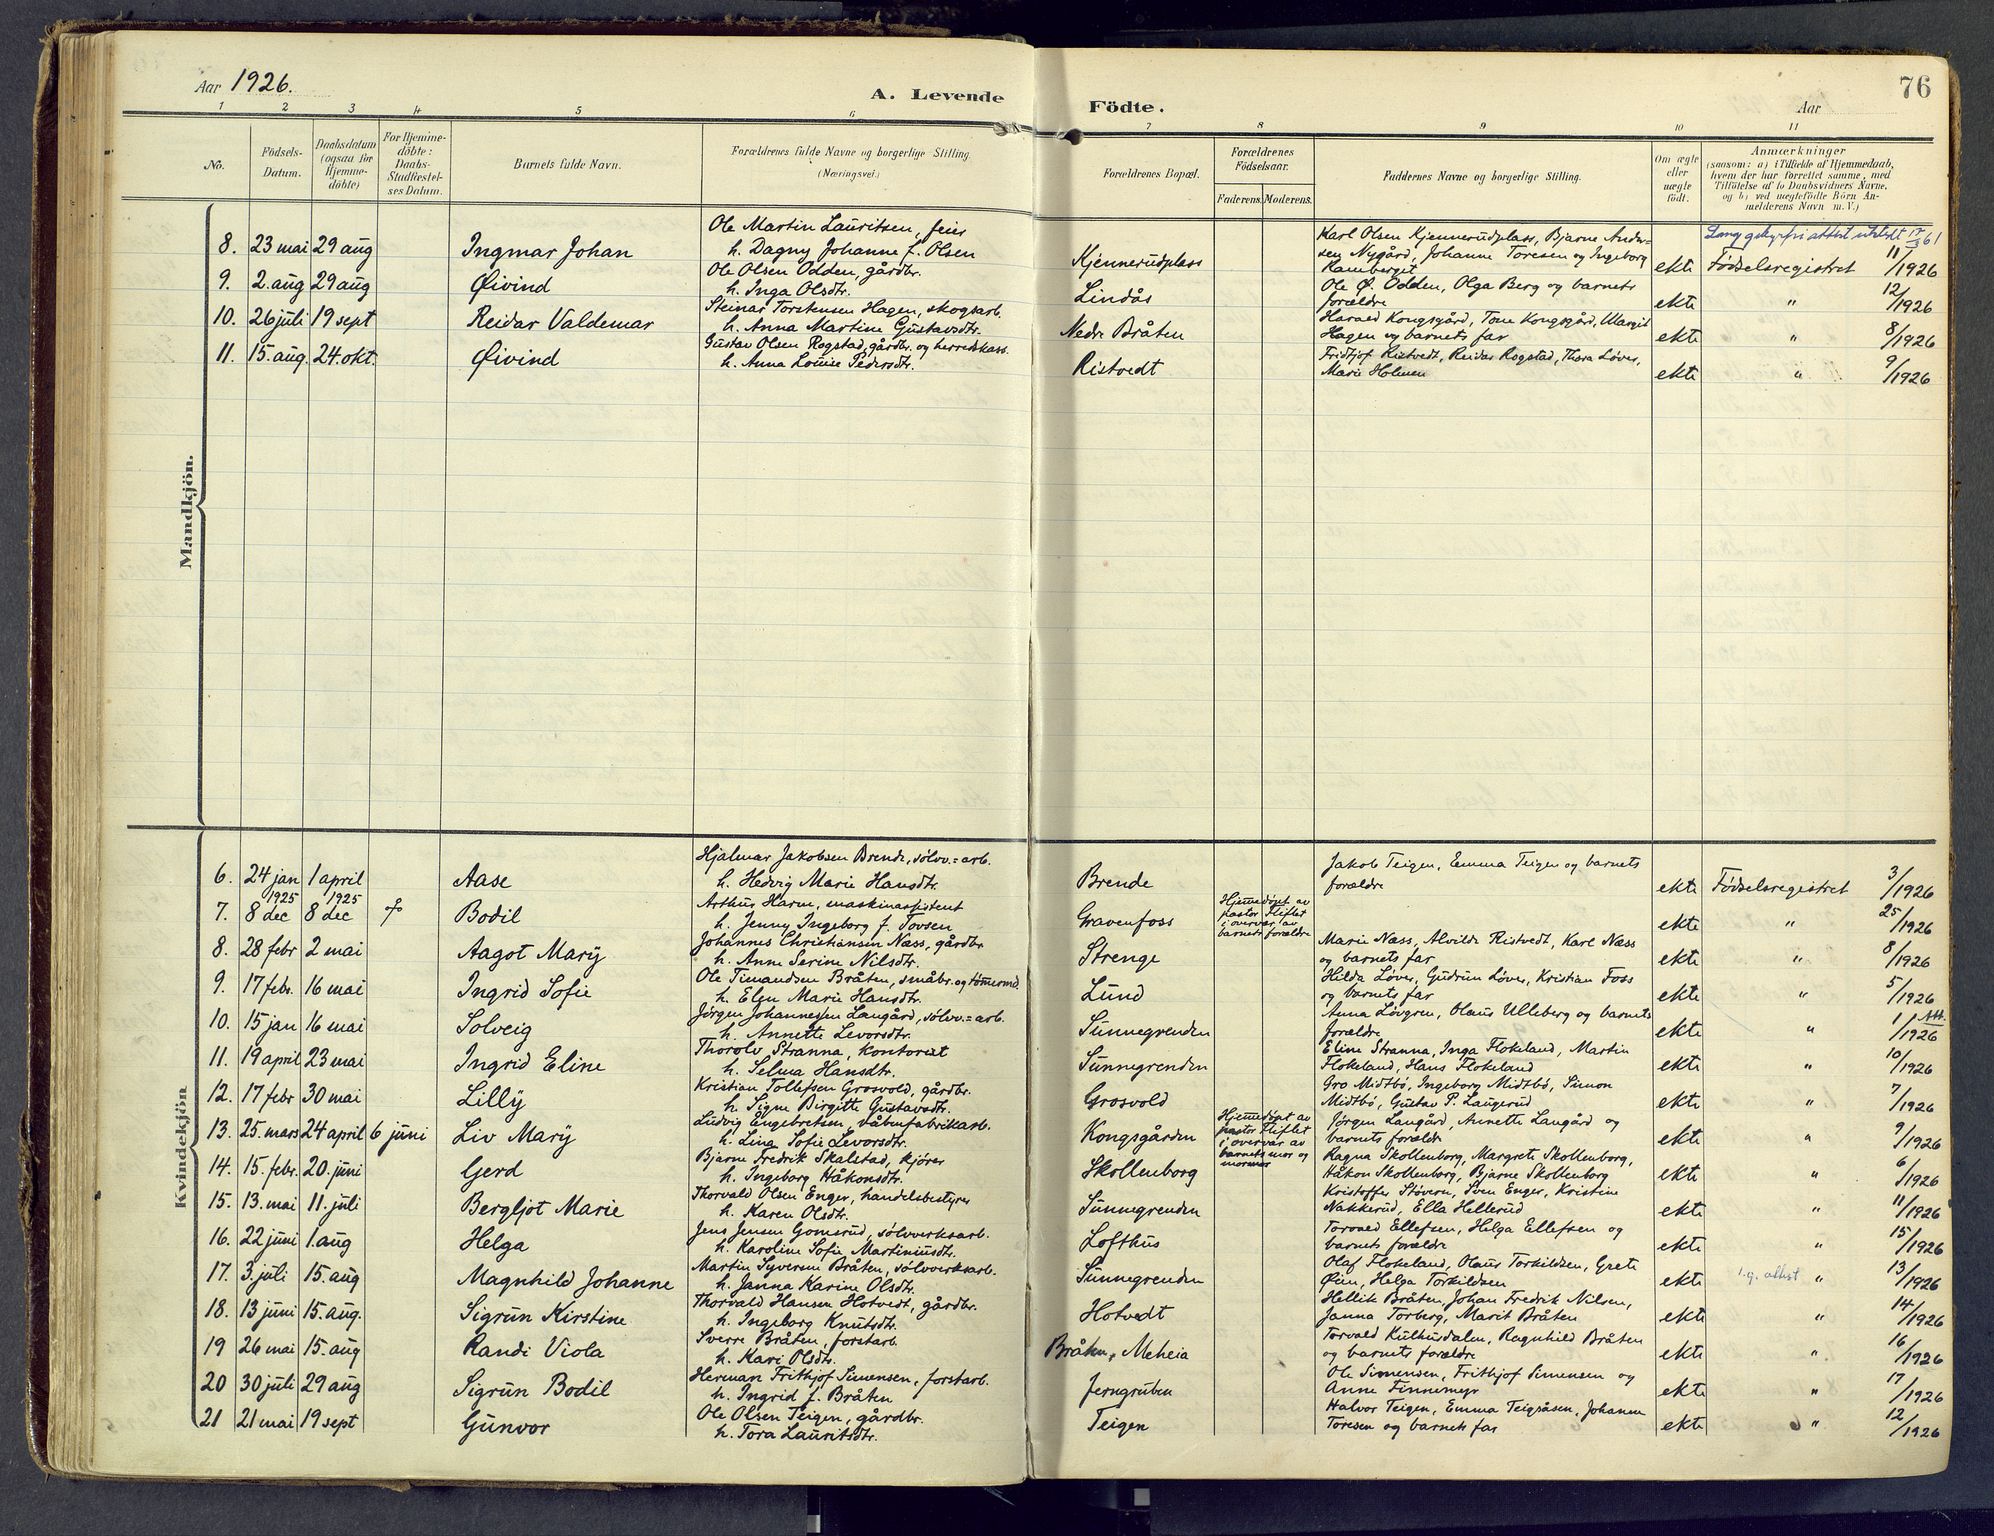 Aar 1926.
A. Levende Födte.
Aar
76
1 2 3 4 5 6 7 8 9 10 11
No.
Födsels-
Datum.
Daabsdatum
(ogsaa for
Hjemme-
döbte)
For Hjemme-
döbte:
Daabs-
Stadfæstel-
ses Datum.
Barnets fulde Navn.
Forældrenes fulde Navne og borgerlige Stilling.
(Næringsvei.)
Forældrenes Bopæl.
Forældrenes
Födselsaar.
Faderens. Moderens.
Faddernes Navne og borgerlige Stilling.
Om ægte
eller
uægte
födt.
Anmærkninger
(saasom: a) i Tilfælde af Hjemmedaab,
hvem der har forrettet samme, med
Tilföielse af to Daabsvidners Navne,
og b) ved uægtefödte Börn An-
melderens Navn m. V.)
Mandkjön.
8. 23 mai 29 aug Ingmar Johan
Ole Martin Lauritsen, feier
h. Dagny Johanne f. Olsen
Kjennerudplass
Karl Olsen Kjennerudplass, Bjarne Ander-
sen Nygård, Johanne Toresen og Ingeborg
Ramberget
ekte Fødselsregistret 11/1926
9. 2. aug 29 aug Øivind
Ole Olsen Odden, gårdbr.
h. Inga Olsdtr.
Lindås
Ole Ø. Odden, Olga Berg og barnets
forældre
ekte " 12/1926
10. 26 juli 19 sept Reidar Valdemar
Steinar Torstensen Hagen, skogsarb.
h. Anna Martine Gustavsdtr.
Nedr. Bråten
Harald Kongsgård, Tom Kongsgård, Margit
Hagen og barnets far
ekte " 8/1926
11. 15. aug. 24. okt. Øivind
Gustav Olsen Rogstad, gårdbr. og herredskass.
h. Anna Louise Pedersdtr.
Ristvedt
Fridtjof Ristvedt, Reidar Rogstad, Thora Løver,
Marie Holmen
ekte " 9/1926
Kvindekjön
6. 24 jan 1 april Aase
Hjalmar Jakobsen Brende, sølvv.=arb.
h. Hedvig Marie Hansdtr.
Brende
Jakob Teigen, Emma Teigen og barnets
forældre
ekte Fødselsregistret 3/1926
7. 1925 8 dec 1925 8 dec Bodil
Arthur Harm, maskinassistent
h. Jenny Ingeborg f. Tovsen
Gravenfoss
Hjemmedøpt av
pastor Fliflet
i overvær av
barnets forældre
ekte " 25/1926
8. 28 febr 2 mai Aagot Marÿ
Johannes Christiansen Næss, gårdbr
h. Anne Serine Nilsdtr.
Strenge
Marie Næss, Alvilde Ristvedt, Karl Næss
og barnets far
ekte " 8/1926
9. 17 febr. 16 mai Ingrid Sofie
Ole Timandsen Bråten, småbr. og tømmermd.
h. Elen Marie Hansdtr.
Lund
Hilda Løver, Gudrun Løver, Kristian Foss
og barnets far
ekte " 5/1926
10. 15 jan 16 mai Solveig
Jørgen Johannessen Langård, sølvv.=arb.
h. Annette Levorsdtr.
Sunnegrenden
Anna Løvgren, Olaus Ulleberg og barnets
forældre
ekte " 1/1926 Att.
11. 19 april 23 mai Ingrid Eline
Thorolv Stranna, kontorist
h. Selma Hansdtr.
Sunnegrenden
Eline Stranna, Inga Flokeland, Martin
Flokeland, Hans Flokeland
ekte " 10/1926
12. 17 febr 30 mai Lillÿ
Kristian Tollefsen Grosvold, gårdbr.
h. Signe Birgitte Gustavsdtr.
Grosvold
Gro Midtbø, Ingeborg Midtbø, Simon
Midtbø, Gustav P. Laugerud
ekte " 7/1926
13. 25. mars 24 april 6 juni Liv Marÿ
Ludvig Engebretsen, våbenfabrikarb.
h. Lina Sofie Levorsdtr.
Kongsgården
Hjemmedøpt av
pastor Fliflet
i overvær av
barnets mor og
mormor
Jørgen Langård, Annette Langård og
barnets forældre
ekte " 9/1926
14. 15. febr. 20. juni Gerd
Bjarne Fredrik Skalstad, kjører
h. Ingeborg Håkonsdtr.
Skollenborg
Ragna Skollenborg, Margrete Skollenborg,
Håkon Skollenborg, Bjarne Skollenborg
ekte " 6/1926
15. 13. mai 11. juli Bergljot Marie
Thorvald Olsen Enger, handelsbestyrer
h. Karen Olsdtr.
Sunnegrenden
Kristoffer Støvern, Sven Enger, Kristine
Nakkerud, Ella Hellerud
ekte " 11/1926
16. 22 juni 1. aug Helga
Jens Jensen Gomsrud, sølvverksarb.
h. Karoline Sofie Martiniusdtr.
Lofthus
Torvald Ellefsen, Helga Ellefsen og
barnets forældre
ekte " 15/1926
17. 3. juli 15. aug Magnhild Johanne
Martin Syversen Bråten, sølvverksarb.
h. Janna Karine Olsdtr.
Sunnegrenden
Olaf Flokeland, Olaus Torkildsen, Grete
Øien, Helga Torkildsen
ekte attest " 13/1926
18. 13 juni 15. aug. Sigrun Kirstine
Thorvald Hansen Hotvedt, gårdbr.
h. Ingeborg Knutsdtr.
Hotvedt
Hellik Bråten, Johan Fredrik Nilsen,
Janna Torberg, Marit Bråten
ekte " 14/1926
19 26 mai 15. aug Randi Viola
Sverre Bråten, forstarb.
h. Kari Olsdtr.
Bråten, Meheia
Torvald Kulhusdalen, Ragnhild Bråten
og barnets forældre
ekte " 16/1926
20 30 juli 29 aug Sigrun Bodil
Herman Frithjof Simensen, forstarb.
h. Ingrid f. Bråten
Jerngruben
Ole Simensen, Frithjof Simensen og
Anne Finnemyr
ekte " 17/1926
21 21 mai 19 sept Gunvor
Ole Olsen Teigen, gårdbr.
h. Tora Lauritsdtr.
Teigen
Halvor Teigen, Emma Teigsåsen, Johanne
Toresen og barnets far
ekte " 12/1926